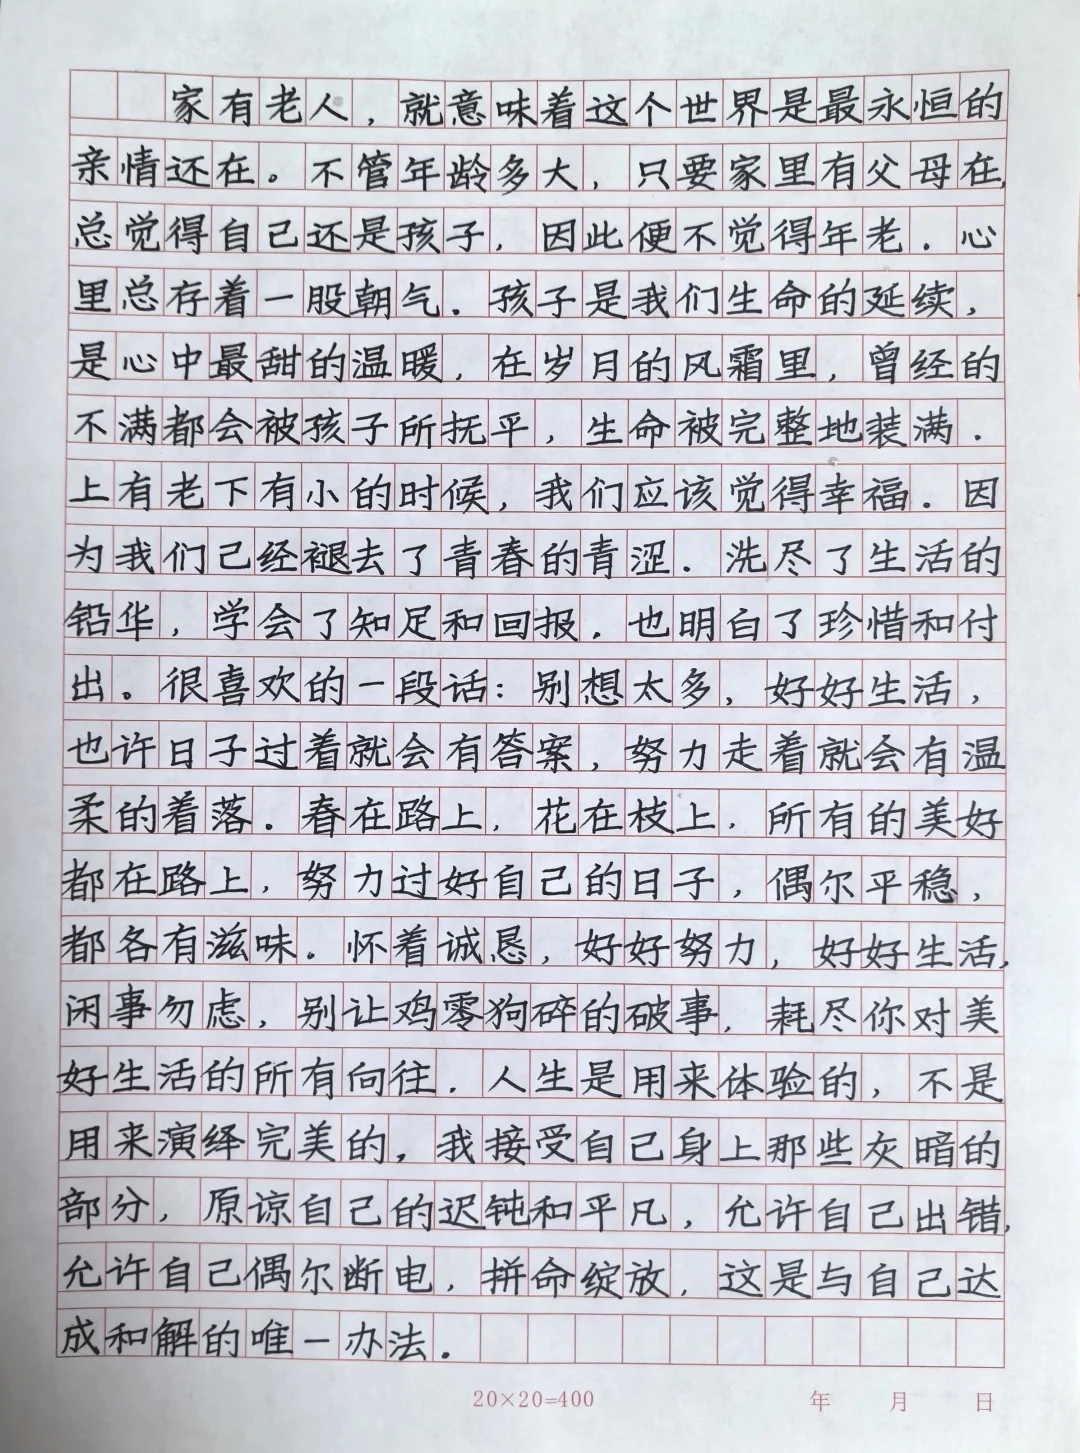 家有老人，就意味着这个世界是最永恒的
亲情还在。不管年龄多大，只要家里有父母在，
总觉得自己还是孩子，因此便不觉得年老．心
里总存着一股朝气．孩子是我们生命的延续，
是心中最甜的温暖，在岁月的风霜里，曾经的
不满都会被孩子所抚平，生命被完整地装满．
上有老下有小的时候，我们应该觉得幸福．因
为我们已经褪去了青春的青涩．洗尽了生活的
铅华，学会了知足和回报．也明白了珍惜和付
出。很喜欢的一段话：别想太多，好好生活，
也许日子过着就会有答案，努力走着就会有温
柔的着落．春在路上，花在枝上，所有的美好
都在路上，努力过好自己的日子，偶尔平稳，
都各有滋味．怀着诚恳，好好努力，好好生活，
闲事勿虑，别让鸡零狗碎的破事，耗尽你对美
好生活的所有向往．人生是用来体验的，不是
用来演绎完美的，我接受自己身上那些灰暗的
部分，原谅自己的迟钝和平凡，允许自己出错，
允许自己偶尔断电，拼命绽放，这是与自己达
成和解的唯一办法．
20×20=400 年 月 日